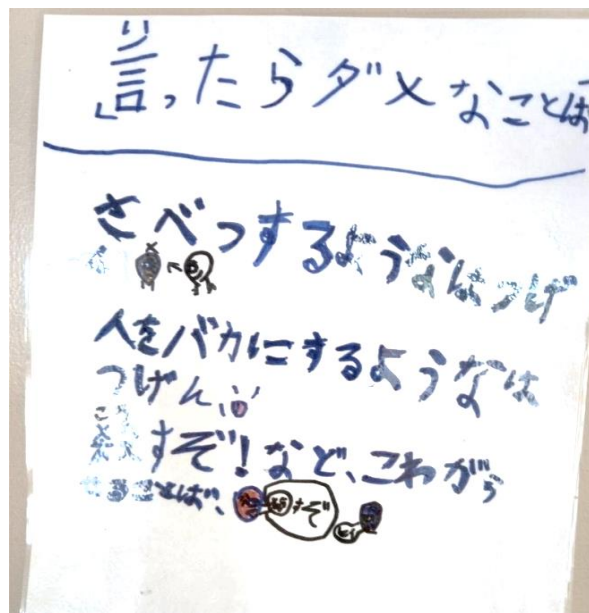 言ったらダメなことば
さべつするようなはつげ
ん
人をバカにするような は
つげん、
殺すぞ!など、こわがら
せることば、
殺すぞ
ヒィ